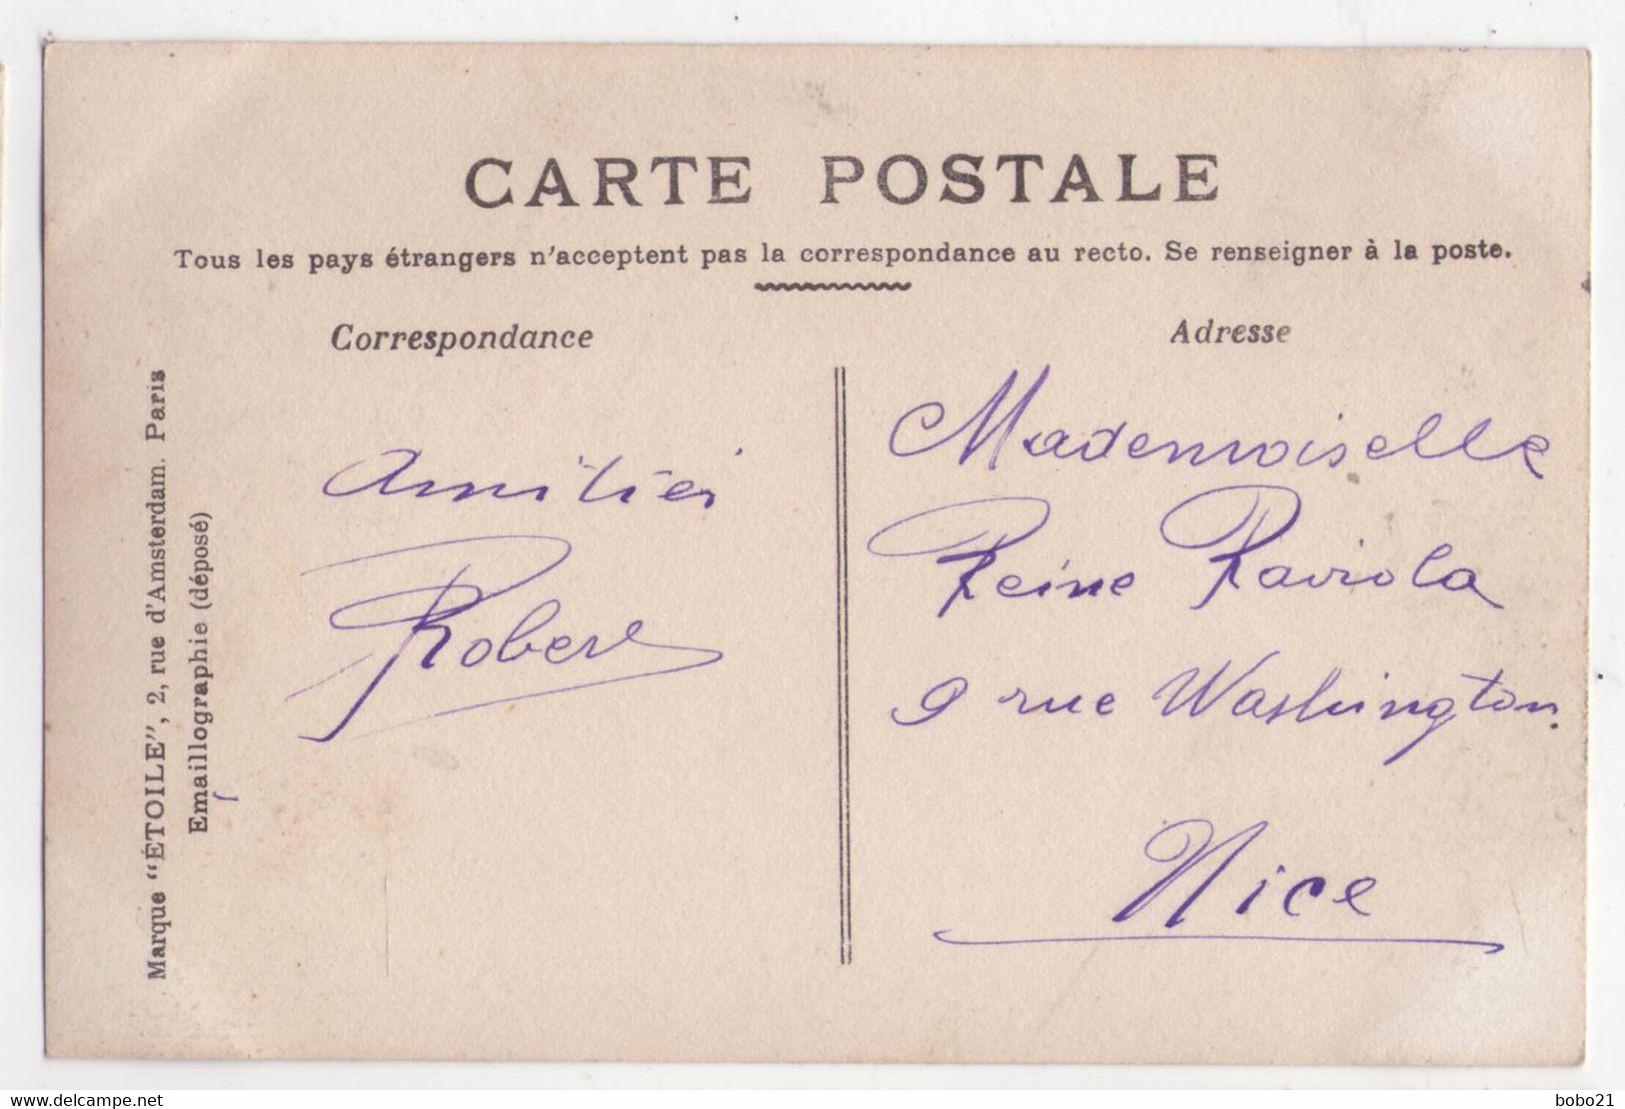 CARTE POSTALE
Tous les pays étrangers n'acceptent pas la correspondance au recto. Se renseigner à la poste.
Correspondance
Adresse
Marque "ÉTOILE", 2, rue d'Amsterdam. Paris
Emaillographie (déposé)
Amitiés
Robert
Mademoiselle
Reine Raviola
9 rue Washington.
Nice
delcampe.net
bobo21